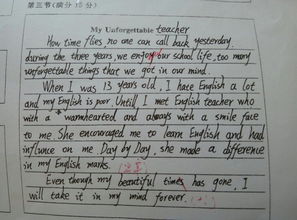 第三节(满分15分)
My Unforgettable teacher
How time flies no one can call back yesterday.
during the three years, we enjoy our school life, too many
unforgettable things that we got in our mind.
When I was 13 years old, I hate English a lot
and my English is poor. Untill I met English teacher who
with a warmhearted and always with a smile face
to me. She encouraged me to learn English and had
influence on me Day by Day, she made a difference
in my English marks.
Even though my beautiful times has gone, I
will take it in my mind forever.